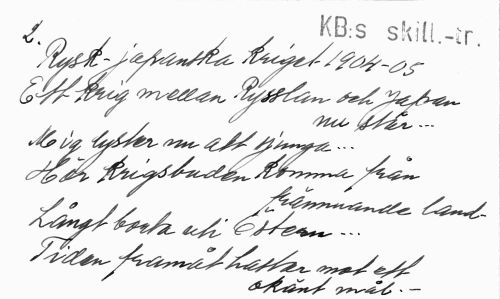 KB:s skill.-tr.
2.
Rysk-japanska kriget 1904-05
Ett krig mellan Rysslan och Japan
nu står...
Mig lyster nu att sjunga...
Hör krigsbuden komma från
främmande land-
Långt borta uti Östern...
Tiden framåt hastar mot ett
okänt mål.-